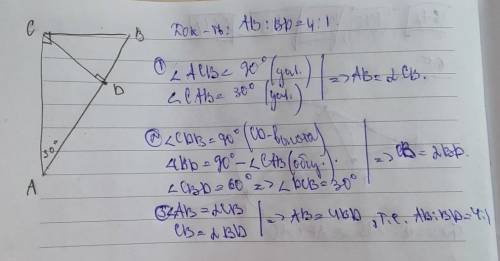 C
B
D
30°
A
Док-ть: AB:BD=4:1
① ∠ACB = 90° (усл.)
∠CAB = 30° (усл.)
=> AB = 2CB.
② ∠CDB = 90° (CD-высота)
∠CBD = 90° - ∠CAB (общ.).
∠CBD = 60° => ∠DCB = 30°
=> CB = 2BD.
③ AB = 2CB
CB = 2BD
=> AB = 4BD, т.е. AB:BD = 4:1